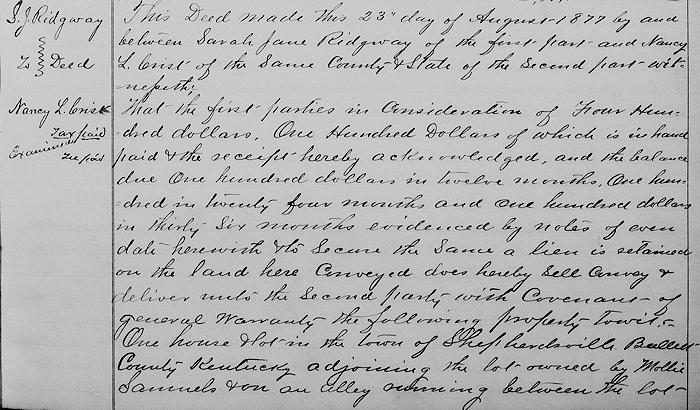 S. J. Ridgway
To } Deed
Nancy L. Crist
Tax paid
Examined
Fee paid
This Deed made this 23" day of August 1877 by and
between Sarah Jane Ridgway of the first part and Nancy
L. Crist of the Same County & State of the Second part wit-
nesseth;
That the first parties in Consideration of Four Hun-
dred dollars, One Hundred Dollars of which is in hand
paid & the receipt hereby acknowledged, and the balance
due One hundred dollars in twelve months, One hun-
dred in twenty four months and one hundred dollars
in thirty Six months evidenced by notes of even
date herewith & to Secure the Same a lien is retained
on the land here Conveyed does hereby Sell Convey &
deliver unto the Second party with Covenant of
general Warranty the following property towit:-
One house & lot in the town of Shepherdsville Bullitt
County Kentucky adjoining the lot owned by Mollie
Samuels & on an alley running between the lot